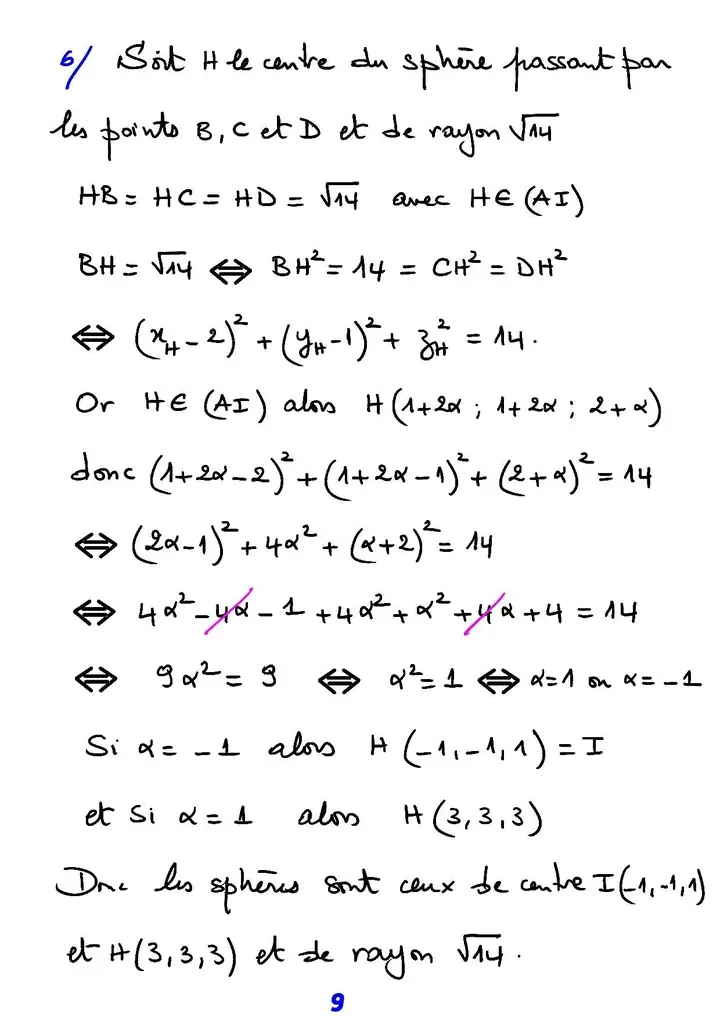 6/ Soit H le centre du sphère passant par
les points B, C et D et de rayon √14
HB = HC = HD = √14 avec H ∈ (AI)
BH = √14 ⟺ BH² = 14 = CH² = DH²
⟺ (x_H - 2)² + (y_H - 1)² + z_H² = 14.
Or H ∈ (AI) alors H(1+2α ; 1+2α ; 2+α)
donc (1+2α-2)² + (1+2α-1)² + (2+α)² = 14
⟺ (2α-1)² + 4α² + (α+2)² = 14
⟺ 4α² - 4α - 1 + 4α² + α² + 4α + 4 = 14
⟺ 9α² = 9 ⟺ α² = 1 ⟺ α = 1 ou α = -1
Si α = -1 alors H(-1,-1,1) = I
et si α = 1 alors H(3,3,3)
Donc les sphères sont ceux de centre I(-1,-1,1)
et H(3,3,3) et de rayon √14.
9